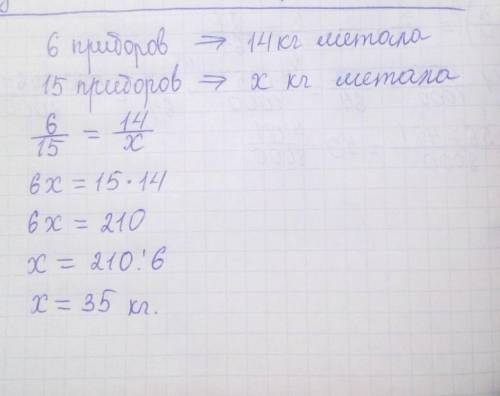 6 приборов ⇒ 14 кг метала
15 приборов ⇒ x кг метала
6/15 = 14/x
6x = 15·14
6x = 210
x = 210:6
x = 35 кг.